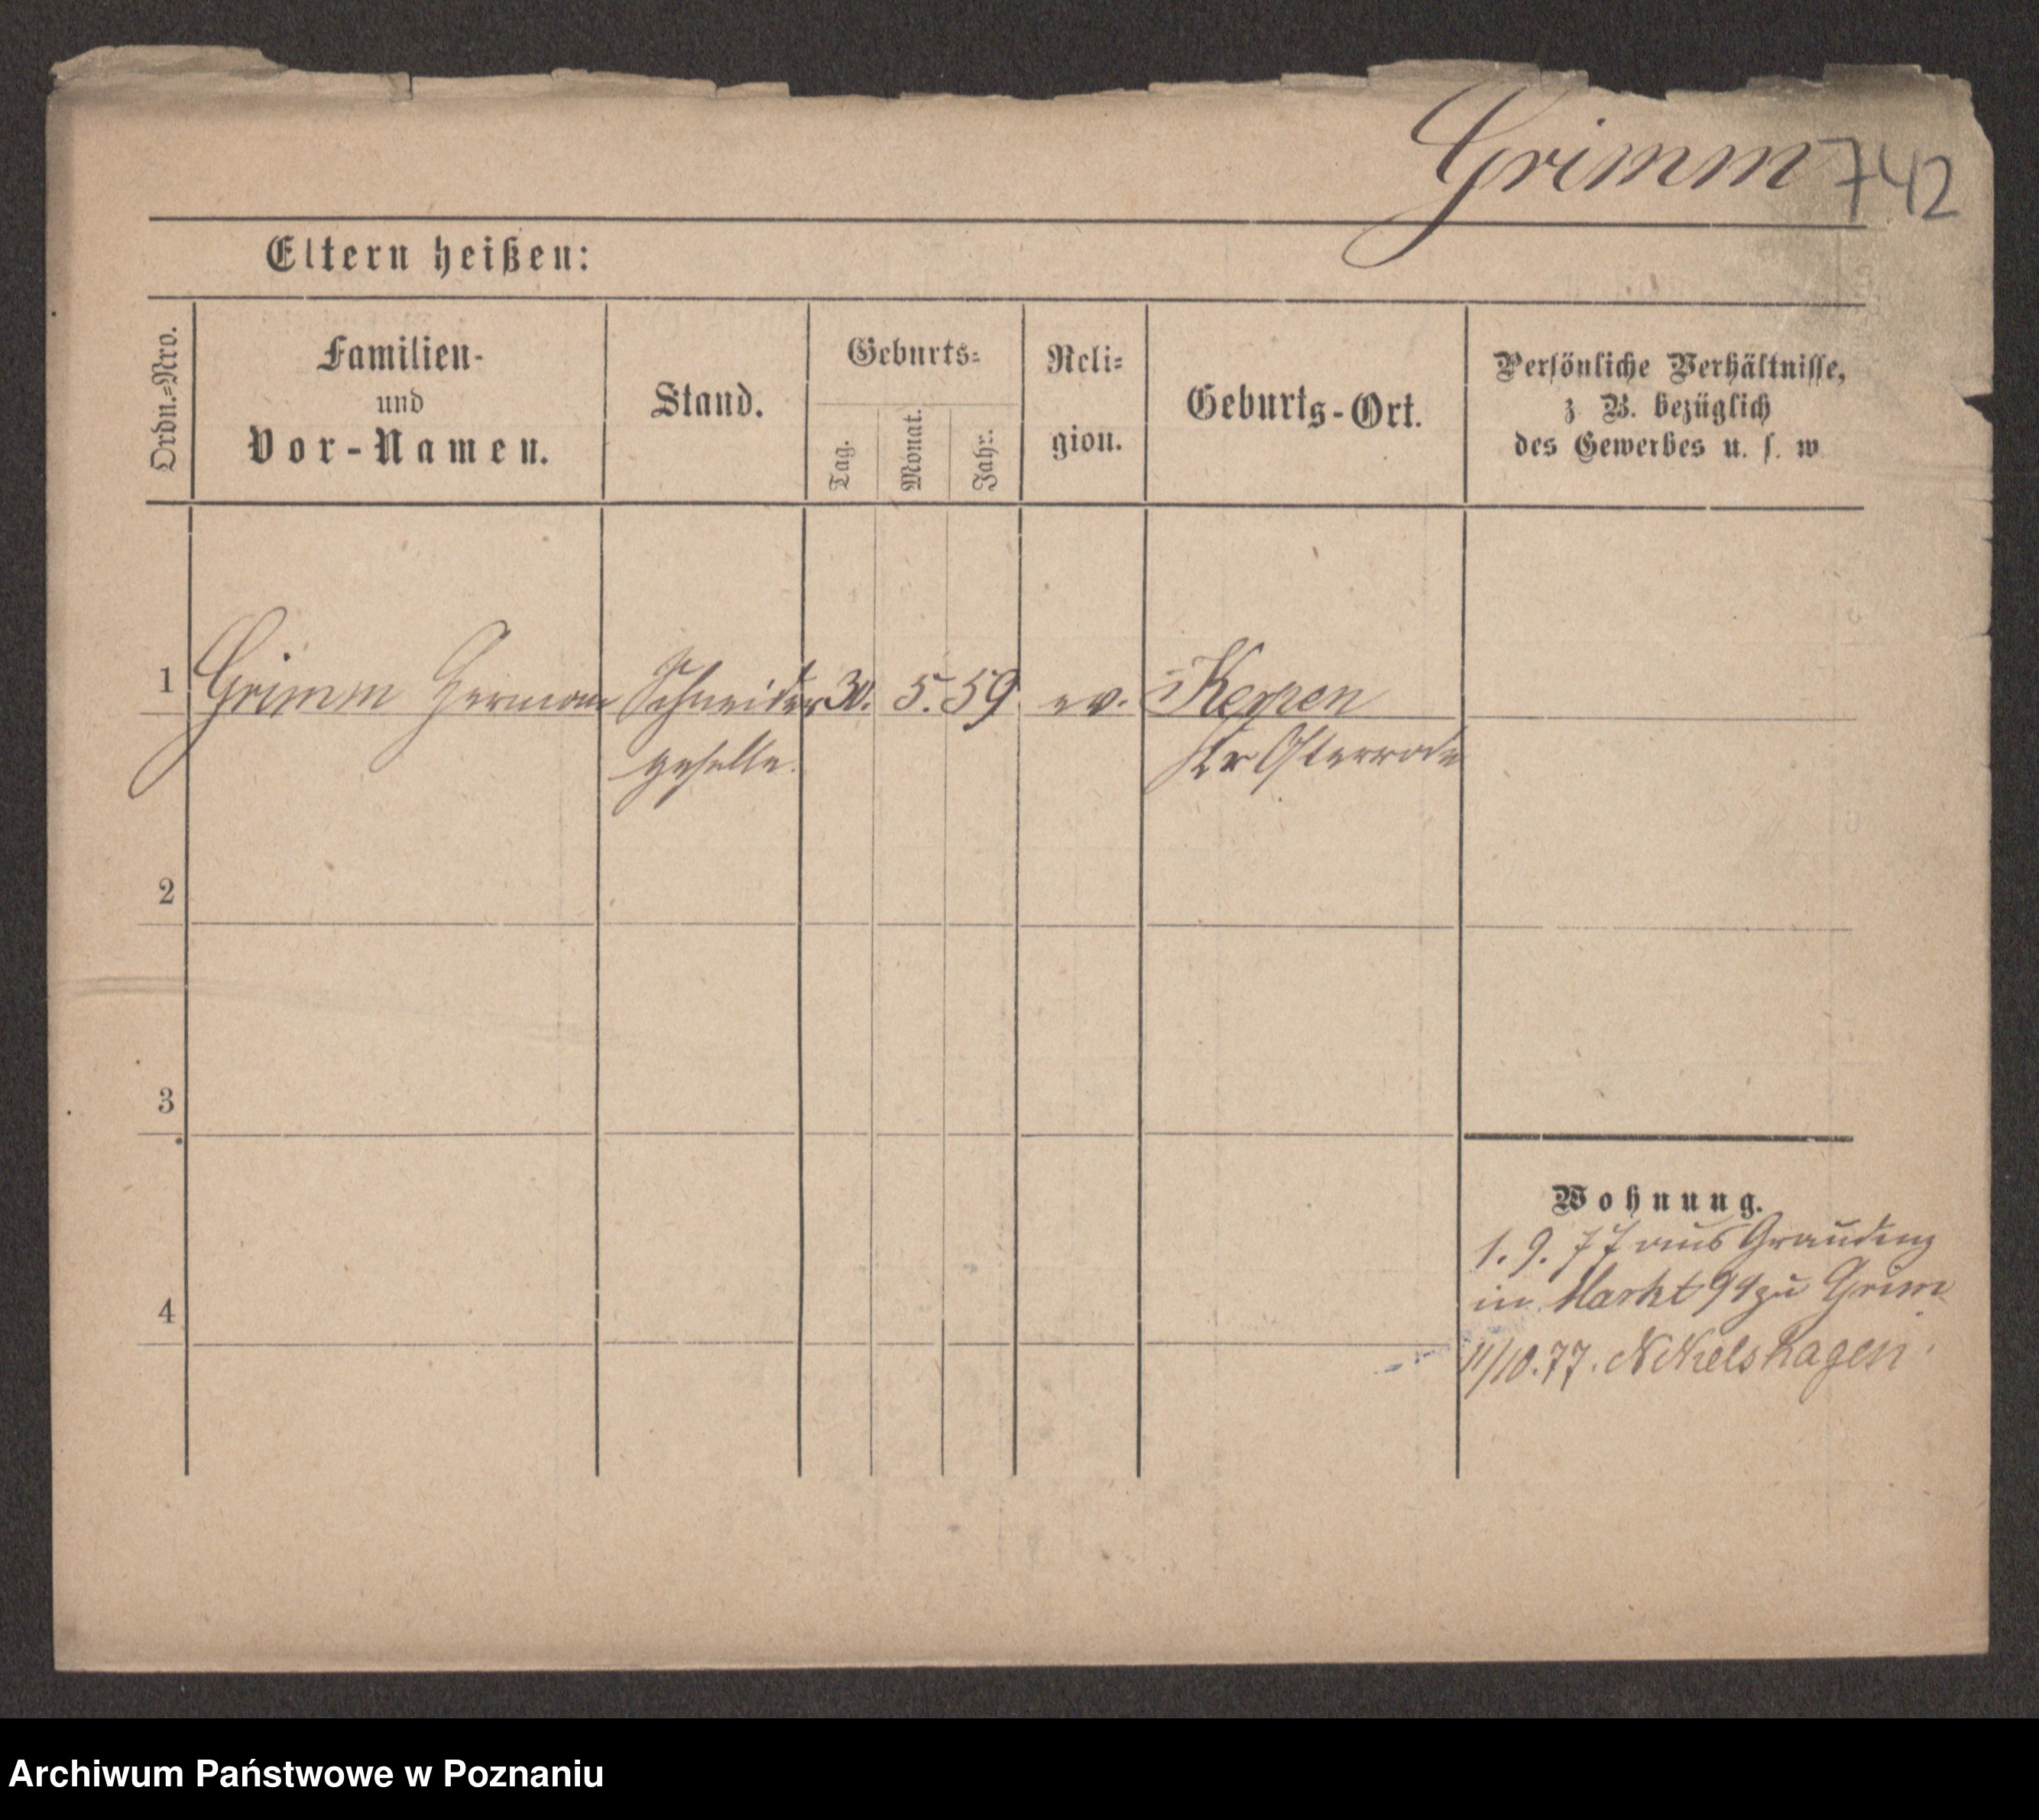 Grimm 742
Eltern heißen:
Ordn.=Nro.
Familien-
und
Vor-Namen.
Stand.
Geburts=
Tag.
Monat.
Jahr.
Reli=
gion.
Geburts-Ort.
Persönliche Verhältnisse,
z. B. bezüglich
des Gewerbes u. s. w
1 Grimm Herman Schneider 30. 5. 59 ev. Kerpen
geselle. Kr Osterrode
2
3
4
Wohnung.
1. 9. 77 aus Graudenz
in Markt zu Grim
11/10.77.
Archiwum Państwowe w Poznaniu